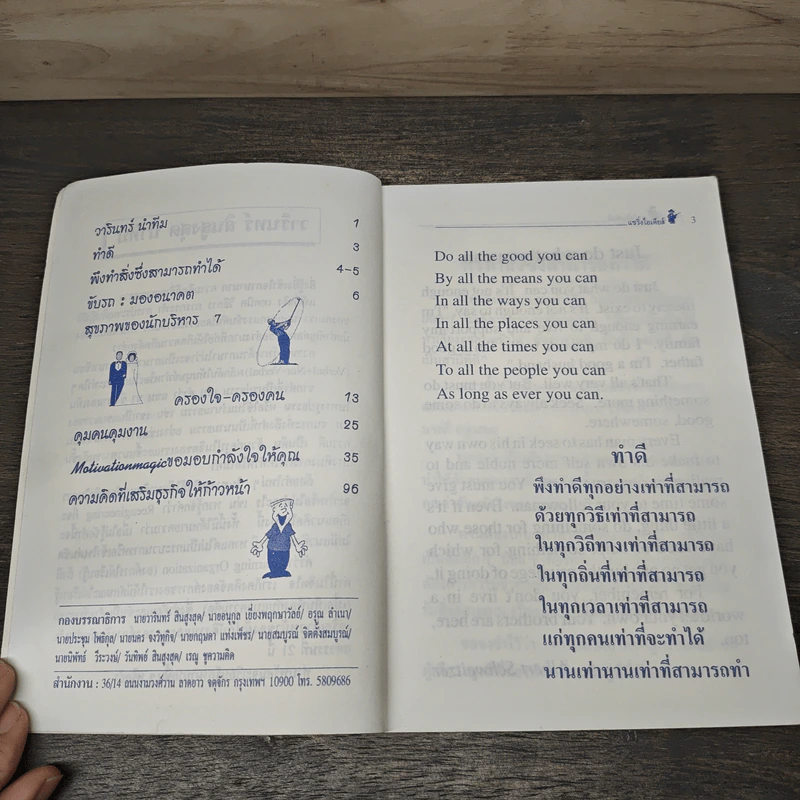 วารินทร์ นำทีม 1
ทำดี 3
พึงทำสิ่งซึ่งสามารถทำได้ 4-5
ขับรถ : มองอนาคต 6
สุขภาพของนักบริหาร 7
ครองใจ-ครองคน 13
คุมคนคุมงาน 25
Motivationmagicขอมอบกำลังใจให้คุณ 35
ความคิดที่เสริมธุรกิจให้ก้าวหน้า 96
กองบรรณาธิการ นายวารินทร์ สินสูงสุด/ นายอนุกูล เยื่องพฤกษาวัลย์/ อรุณ ลำเนา/
นายประชุม โพธิกุล/ นายนคร จงวิทูกิจ/ นายกฤษดา แท่งเพ็ชร/ นายสมบูรณ์ จิตตั้งสมบูรณ์/
นายนิพัทธ์ วีระวงษ์/ วันทิพย์ สินสูงสุด/ เรณู ชุดความคิด
สำนักงาน : 36/14 ถนนงามวงศ์วาน ลาดยาว จตุจักร กรุงเทพฯ 10900 โทร. 5809686
แชริ่งไอเดียส์ 3
Do all the good you can
By all the means you can
In all the ways you can
In all the places you can
At all the times you can
To all the people you can
As long as ever you can.
ทำดี
พึงทำดีทุกอย่างเท่าที่สามารถ
ด้วยทุกวิธีเท่าที่สามารถ
ในทุกวิถีทางเท่าที่สามารถ
ในทุกถิ่นที่เท่าที่สามารถ
ในทุกเวลาเท่าที่สามารถ
แก่ทุกคนเท่าที่จะทำได้
นานเท่านานเท่าที่สามารถทำ